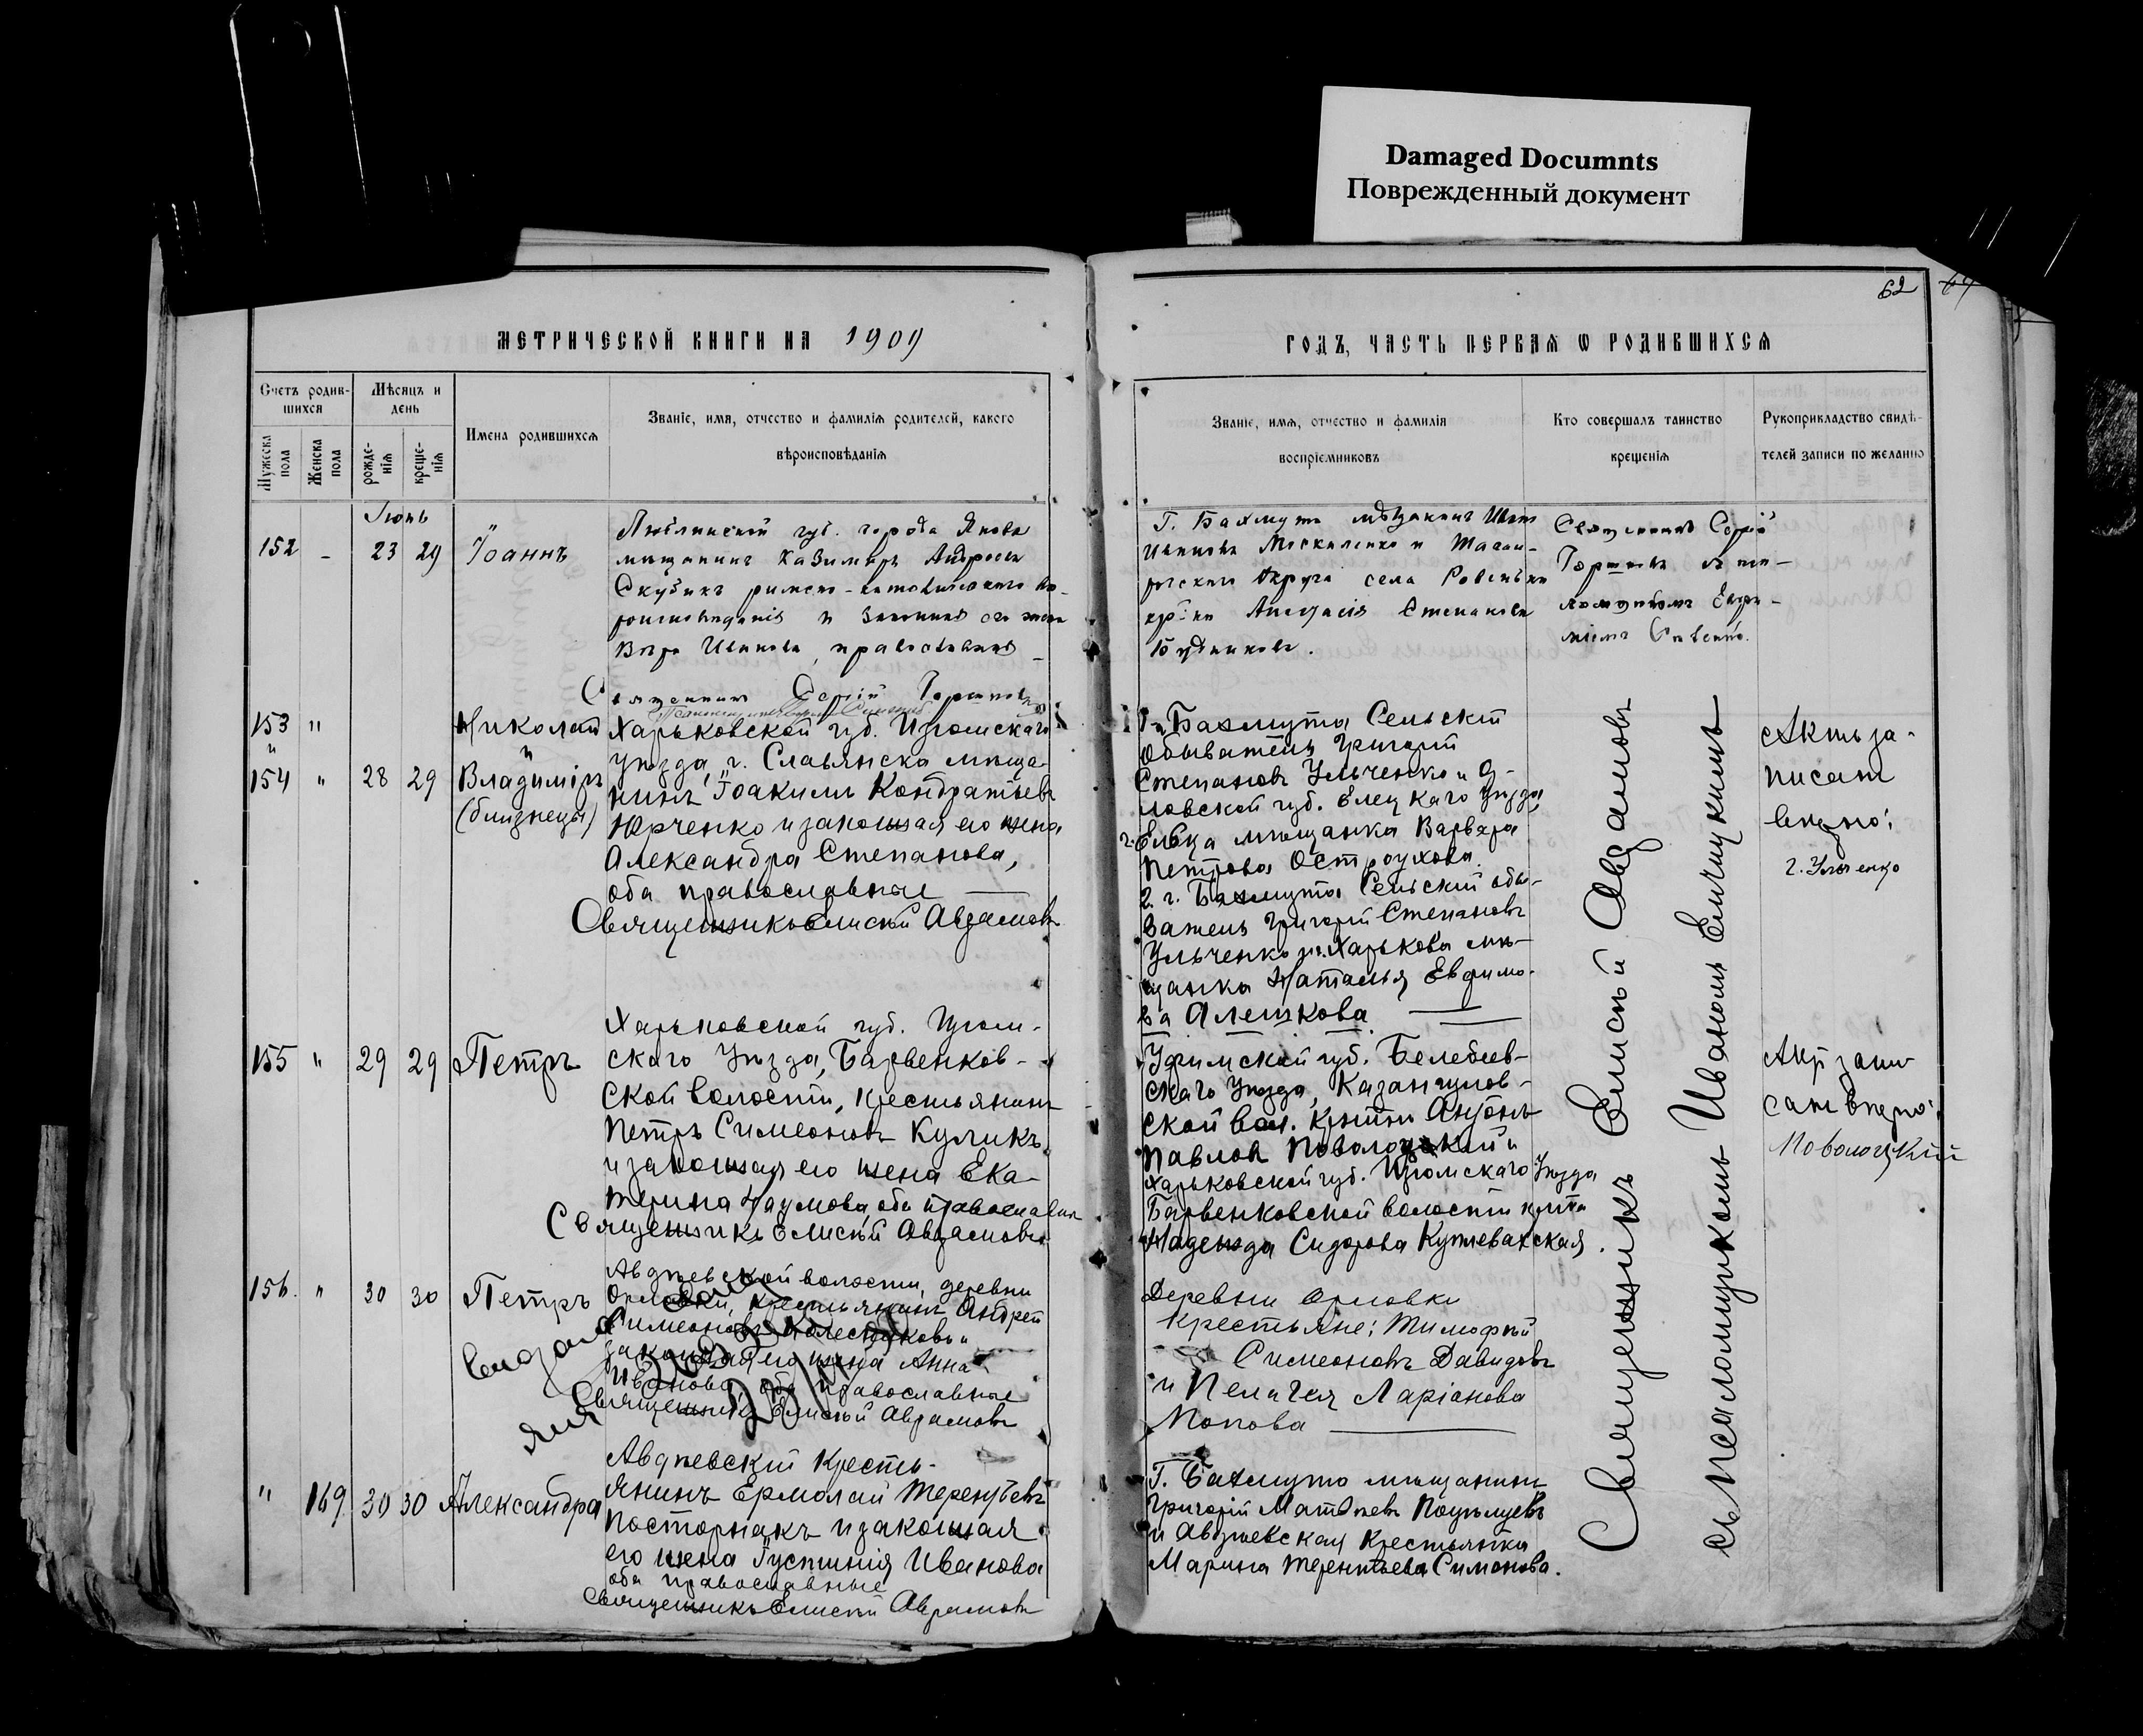 Damaged Documnts
Поврежденный документ
62
МЕТРИЧЕСКОЙ КНИГИ НА 1909
ГОДЪ, ЧАСТЬ ПЕРВАЯ Ѡ РОДИВШИХСЯ
Счетъ родившихся
Мѣсяцъ и день
Имена родившихся
Званіе, имя, отчество и фамилія родителей, какого
вѣроисповѣданія
Мужеска пола
Женска пола
рожденія
крещенія
Званіе, имя, отчество и фамилія
воспріемниковъ
Кто совершалъ таинство
крещенія
Рукоприкладство свидѣ-
телей записи по желанію
Іюнь
152 - 23 29 Іоаннъ
Люблинской губ. города Янова
мѣщанинъ Казимиръ Андреевъ
римско-католическаго вѣ-
роисповѣданія и законная его жена
Вѣра Иванова, православная
Священникъ Сергій
Г. Бахмута мѣщанинъ Иванъ
Ивановъ Москаленко и Таган-
рогскаго округа села Ровеньки
Степанова
Будникова.
Священникъ Сергій
съ пса-
ломщикомъ
153 " Николай
и и
154 " 28 29 Владиміръ
(близнецы)
Харьковской губ. Изюмскаго
уѣзда, г. Славянска мѣща-
нинъ Іоакимъ Кондратьевъ
Юрченко и законная его жена
Александра Степанова,
оба православные
Священникъ Елисей Авраамовъ
1. г. Бахмута Сельскій
обыватель Григорій
Степановъ Ульченко и Ор-
ловской губ. Елецкаго уѣзда
г. Ельца мѣщанка Варвара
Петрова Остроухова.
2. г. Бахмута Сельскій обы-
ватель Григорій Степановъ
Ульченко и г. Харькова мѣ-
щанка Наталья Евфимо-
ва Алешкова
Актъ за-
писан
вѣрно:
Г. Ульченко
155 " 29 29 Петръ
Харьковской губ. Изюм-
скаго уѣзда, Барвенков-
ской волости, крестьянинъ
Петръ Симеоновъ Куликъ
и законная его жена Ека-
терина Наумова, оба православные
Священникъ Елисей Авраамовъ
Уфимской губ. Белебеев-
скаго уѣзда, Казангулов-
ской вол. Антонъ
Павловъ Поволоцкій и
Харьковской губ. Изюмскаго уѣзда
Барвенковской волости
Надежда Сидорова
Акт запи-
сан вѣрно:
Поволоцкий
156. " 30 30 Петръ
Авдѣевской волости, деревни
Орловки, крестьянинъ Андрей
Симеоновъ Колесниковъ и
законная его жена Анна
Иванова, оба православные
Священникъ Елисей Авраамовъ
Деревни Орловки
Крестьяне: Тимофей
Симеоновъ Давидовъ
и Пелагея Ларіонова
Попова
" 169 30 30 Александра
Авдѣевскій кресть-
янинъ Ермолай Терентьевъ
Посторнакъ и законная
его жена Іустинія Иванова
оба православные
Священникъ Елисей Авраамовъ
Г. Бахмута мѣщанинъ
Григорій Матвѣевъ
и Авдѣевская крестьянка
Марина Терентьева Симонова.
Священникъ Елисей Авраамовъ
съ псаломщикомъ Иваномъ